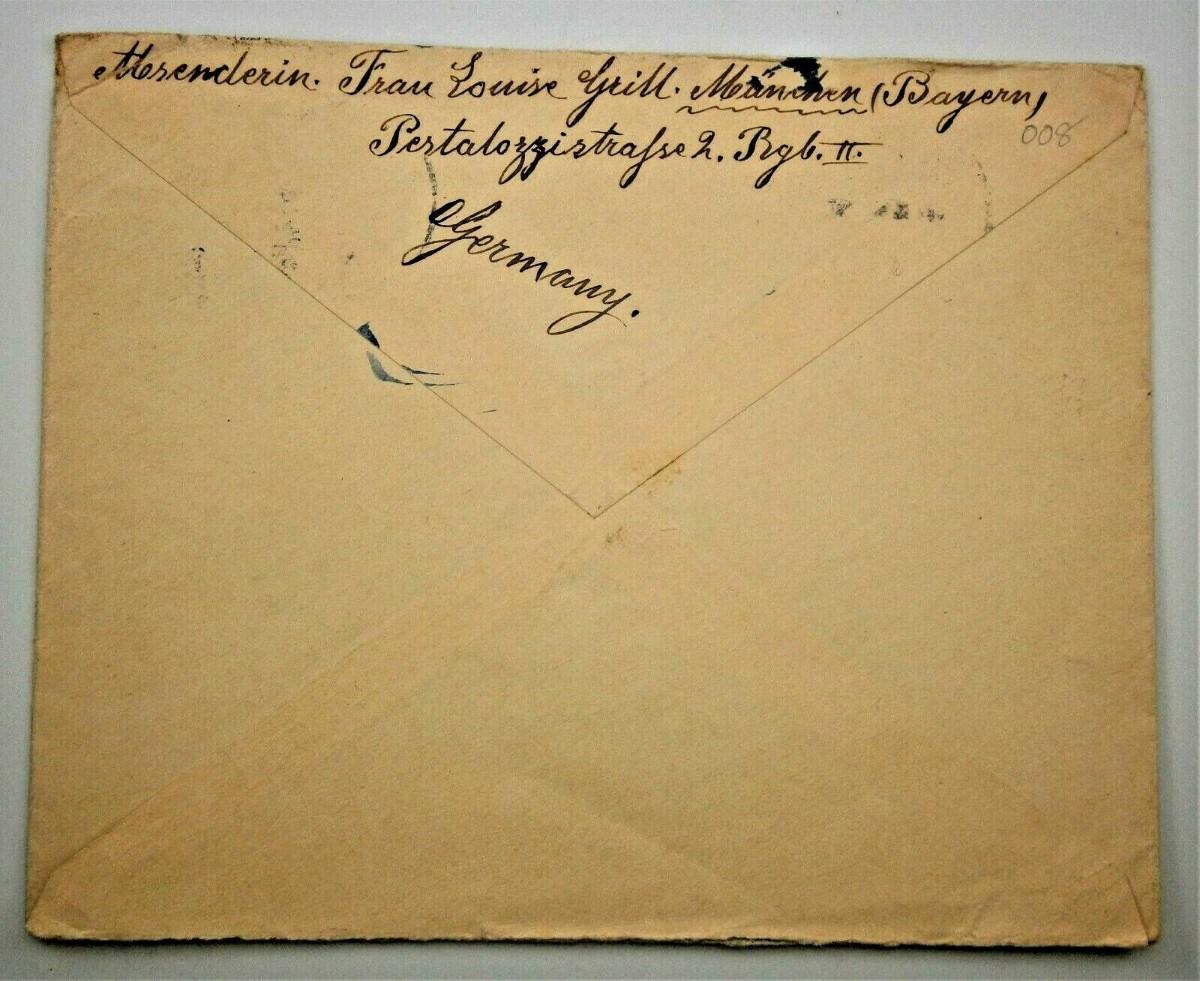 Absenderin. Frau Louise Grill. München (Bayern)
008
Pestalozzistraße 2. Rgb. II.
Germany.